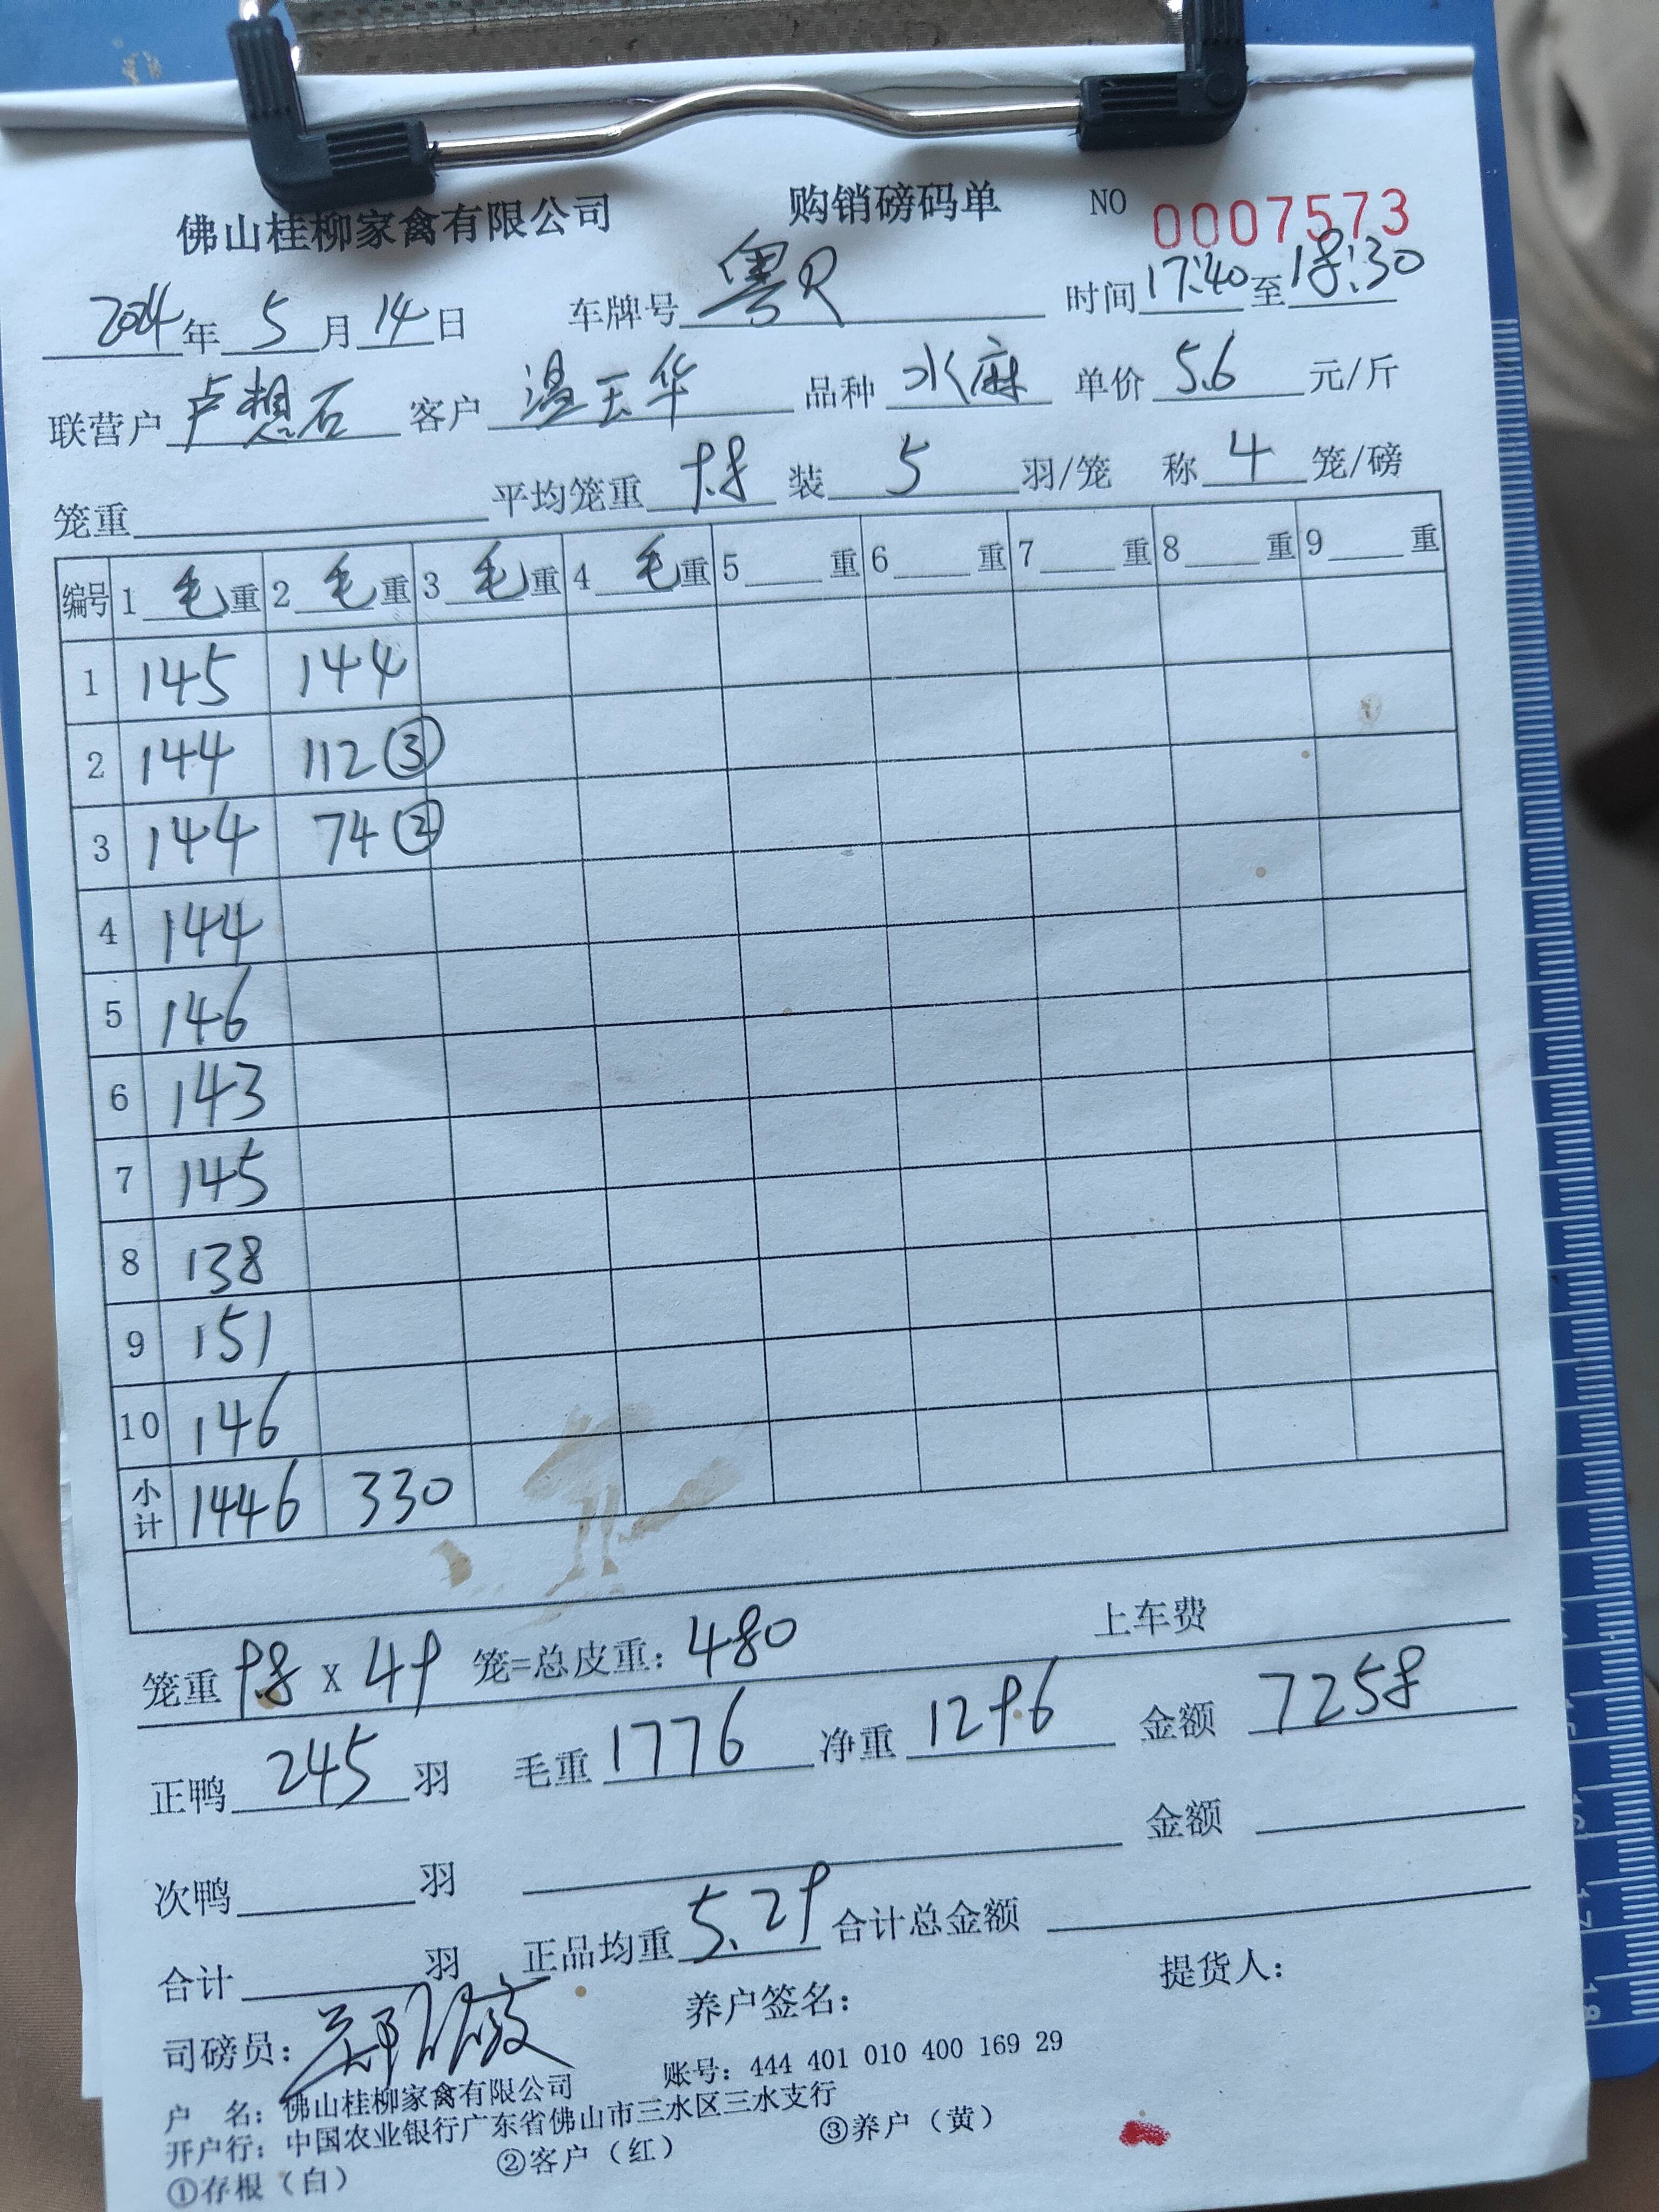 佛山桂柳家禽有限公司 购销磅码单 NO 0007573
2024年 5月 14日 车牌号 粤R 时间 17:40 至 18:30
联营户 卢想石 客户 温玉华 品种 水麻 单价 5.6 元/斤
笼重 平均笼重 9.8 装 5 羽/笼 称 4 笼/磅
编号 1 毛重 2 毛重 3 毛重 4 毛重 5 重 6 重 7 重 8 重 9 重
1 145 144
2 144 112 ③
3 144 74 ②
4 144
5 146
6 143
7 145
8 138
9 151
10 146
小计 1446 330
笼重 9.8 x 49 笼=总皮重: 480 上车费
正鸭 245 羽 毛重 1776 净重 1296 金额 7258
次鸭 羽 金额
合计 羽 正品均重 5.29 合计总金额
司磅员: 养户签名: 提货人:
户 名: 佛山桂柳家禽有限公司 账号: 444 401 010 400 169 29
开户行: 中国农业银行广东省佛山市三水区三水支行
①存根（白） ②客户（红） ③养户（黄）